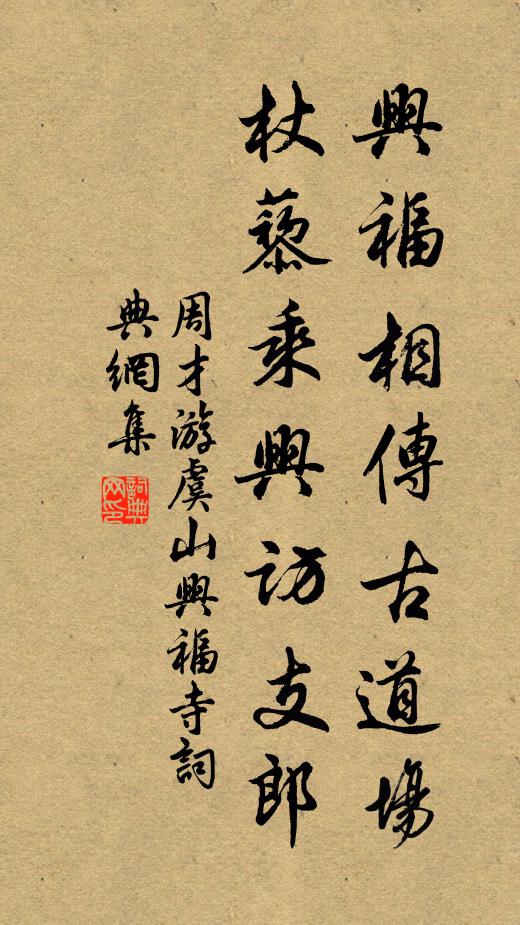 興福相傳古道場
杖藜乘興訪支郎
周才游虞山興福寺詞
典網集
詞典網印